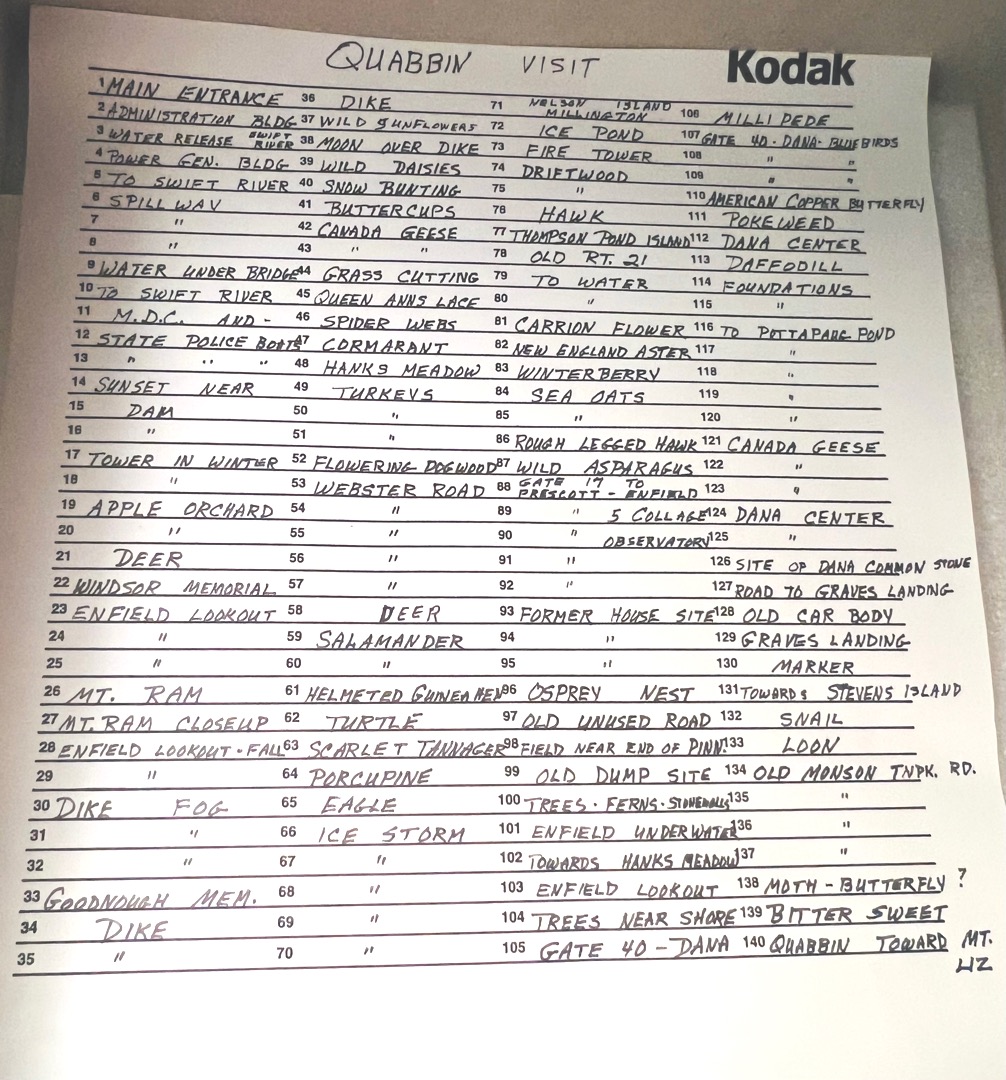 QUABBIN VISIT Kodak
1 MAIN ENTRANCE
2 ADMINISTRATION BLDG
3 WATER RELEASE SWIFT RIVER
4 POWER GEN. BLDG
5 TO SWIFT RIVER
6 SPILL WAY
7 "
8 "
9 WATER UNDER BRIDGE
10 TO SWIFT RIVER
11 M.D.C. AND -
12 STATE POLICE BOATS
13 " " "
14 SUNSET NEAR
15 DAM
16 "
17 TOWER IN WINTER
18 "
19 APPLE ORCHARD
20 "
21 DEER
22 WINDSOR MEMORIAL
23 ENFIELD LOOKOUT
24 "
25 "
26 MT. RAM
27 MT. RAM CLOSEUP
28 ENFIELD LOOKOUT - FALL
29 "
30 DIKE FOG
31 "
32 "
33 GOODNOUGH MEM.
34 DIKE
35 "
36 DIKE
37 WILD SUNFLOWERS
38 MOON OVER DIKE
39 WILD DAISIES
40 SNOW BUNTING
41 BUTTERCUPS
42 CANADA GEESE
43 " "
44 GRASS CUTTING
45 QUEEN ANNS LACE
46 SPIDER WEBS
47 CORMARANT
48 HANKS MEADOW
49 TURKEYS
50 "
51 "
52 FLOWERING DOGWOOD
53 WEBSTER ROAD
54 "
55 "
56 "
57 "
58 DEER
59 SALAMANDER
60 "
61 HELMETED GUINEA HEN
62 TURTLE
63 SCARLET TANNAGER
64 PORCUPINE
65 EAGLE
66 ICE STORM
67 "
68 "
69 "
70 "
71 NELSON ISLAND MILLINGTON
72 ICE POND
73 FIRE TOWER
74 DRIFTWOOD
75 "
76 HAWK
77 THOMPSON POND ISLAND
78 OLD RT. 21
79 TO WATER
80 "
81 CARRION FLOWER
82 NEW ENGLAND ASTER
83 WINTERBERRY
84 SEA OATS
85 "
86 ROUGH LEGGED HAWK
87 WILD ASPARAGUS
88 GATE 17 TO PRESCOTT - ENFIELD
89 " 5 COLLAGE
90 " OBSERVATORY
91 "
92 "
93 FORMER HOUSE SITE
94 "
95 "
96 OSPREY NEST
97 OLD UNUSED ROAD
98 FIELD NEAR END OF PINN.
99 OLD DUMP SITE
100 TREES - FERNS - STONEWALLS
101 ENFIELD UNDERWATER
102 TOWARDS HANKS MEADOW
103 ENFIELD LOOKOUT
104 TREES NEAR SHORE
105 GATE 40 - DANA
106 MILLIPEDE
107 GATE 40 - DANA - BLUEBIRDS
108 " "
109 " "
110 AMERICAN COPPER BUTTERFLY
111 POKEWEED
112 DANA CENTER
113 DAFFODILL
114 FOUNDATIONS
115 "
116 TO POTTAPAUG POND
117 "
118 "
119 "
120 "
121 CANADA GEESE
122 "
123 "
124 DANA CENTER
125 "
126 SITE OF DANA COMMON STONE
127 ROAD TO GRAVES LANDING
128 OLD CAR BODY
129 GRAVES LANDING
130 MARKER
131 TOWARDS STEVENS ISLAND
132 SNAIL
133 LOON
134 OLD MONSON TNPK. RD.
135 "
136 "
137 "
138 MOTH - BUTTERFLY ?
139 BITTER SWEET
140 QUABBIN TOWARD MT. LIZ